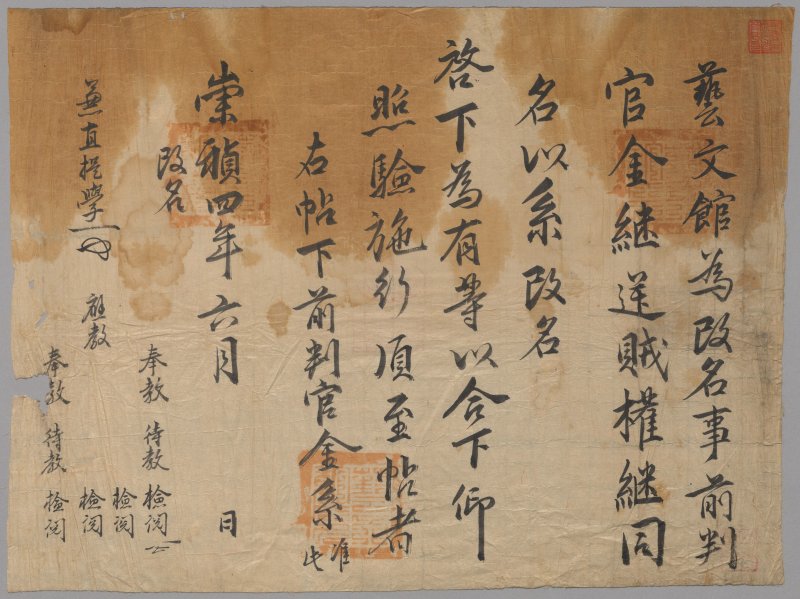 藝文館為改名事前判
官金継送賊權継同
名以系改名
啓下為有等以合下仰
照驗施行須至帖者
右帖下前判官金系 准此
崇禎四年六月 日
改名
奉教 待教 檢閱
檢閱
兼直提學 應教 檢閱
奉教 待教 檢閱